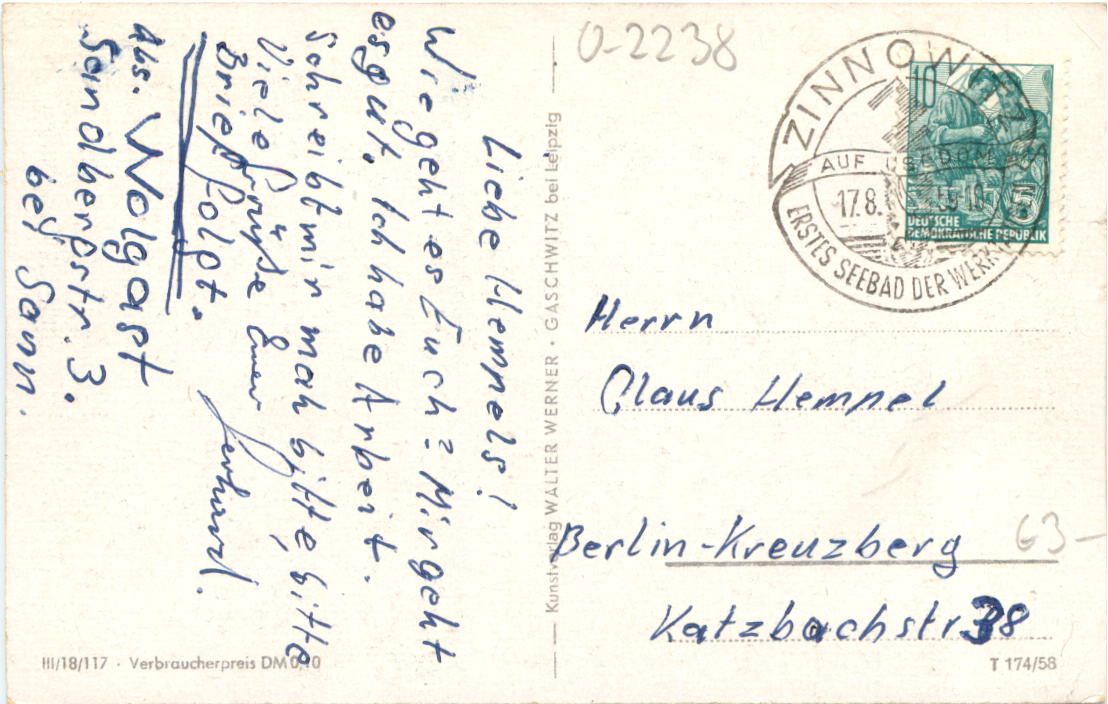 Liebe Hempels!
Wie geht es Euch? Mir geht
es gut. Ich habe Arbeit.
Schreibt mir mah bitte, bitte
Viele Grüße Euer Gerhard.
Brief folgt.
Abs. Wolgast
Sandbergstr. 3.
bei Sann.
Kunstverlag WALTER WERNER · GASCHWITZ bei Leipzig
III/18/117 · Verbraucherpreis DM 0,10
0-2238
ZINNOWITZ
AUF USEDOM
17.8.
ERSTES SEEBAD DER WERK
10
5
DEUTSCHE
DEMOKRATISCHE REPUBLIK
Herrn
Claus Hempel
Berlin-Kreuzberg
63-
Katzbachstr 38
T 174/58